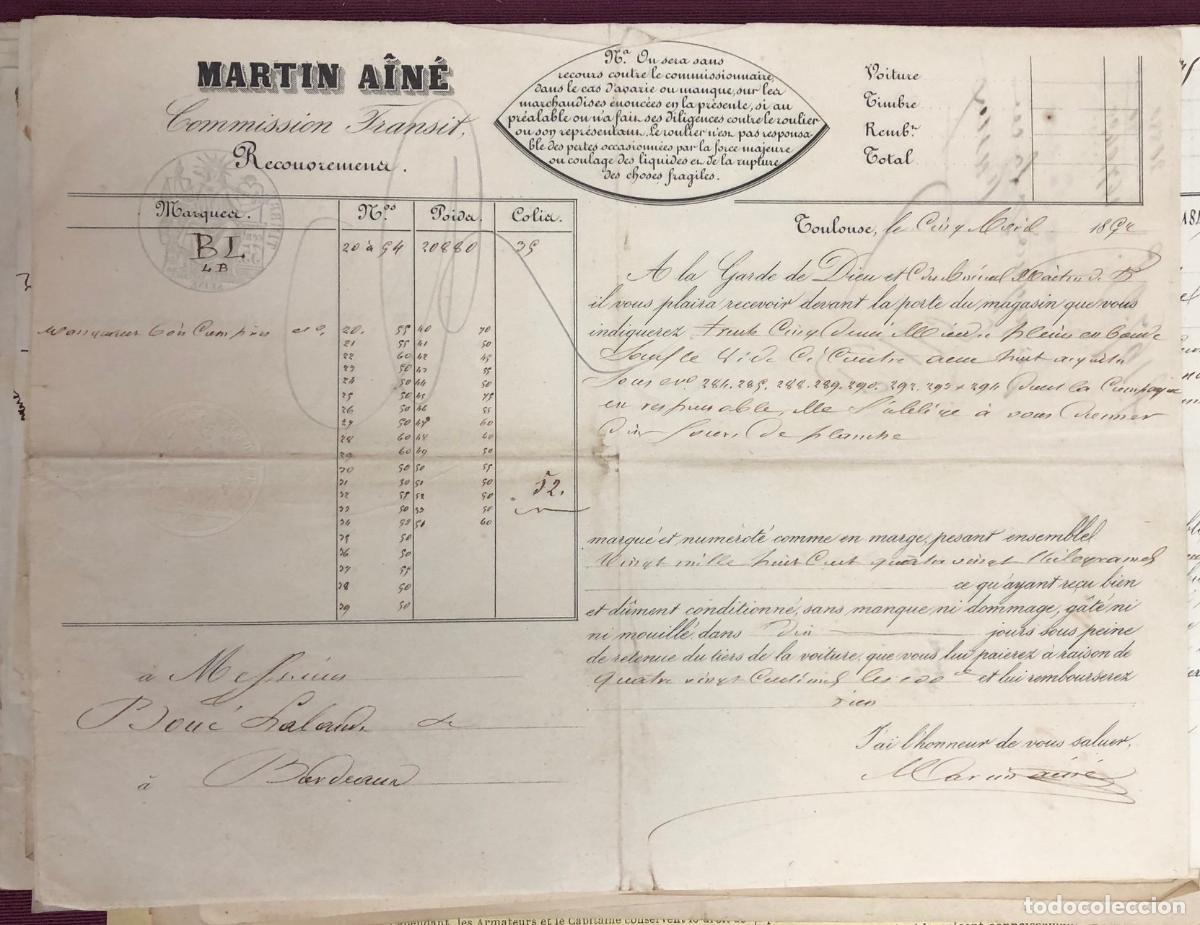 MARTIN AÎNÉ
Commission Transit,
Recouvrement.
Nª. On sera sans
recours contre le commissionnaire,
dans le cas d'avarie ou manque, sur les
marchandises énoncées en la présente, si au
préalable on n'a fait ses diligences contre le roulier
ou son représentant, le roulier n'est pas responsa-
ble des pertes occasionnées par la force majeure
ou coulage des liquides et de la rupture
des choses fragiles.
Voiture
Timbre
Rembt.
Total
Marques. Nos. Poids. Colis.
BL 20 à 54 20880 35
LB
20. 55 40 70
21 55 41 50
22 60 42 45
23 50 43 55
24 50 44 50
25 50 45 75
26 50 46 55
27 50 47 60
28 60 48 40
29 60 49 50
30 50 50 55
31 50 51 50
32 55 52 50
33 50 53 50
34 50 54 60
35 50
36 50
37 55
38 50
39 50
52.
Toulouse, le Cinq Avril 185
A la Garde de Dieu et
il vous plaira recevoir devant la porte du magasin que vous
indiquerez trente Cinq
sous nos 284. 285. 288. 289. 290. 292. 293 & 294 dont la Compagnie
est responsable, Elle s'oblige à vous donner
dix jours de planche
marqué et numéroté comme en marge, pesant ensemble
Vingt mille huit Cent quatre vingt Kilogrames
ce qu'ayant reçu bien
et dûment conditionné, sans manque, ni dommage, gâté ni
ni mouillé, dans dix jours sous peine
de retenue du tiers de la voiture, que vous lui paierez à raison de
quatre vingt Centimes les 100 K et lui rembourserez
rien
J'ai l'honneur de vous saluer,
Martin aîné
à Messieurs
Boué Lalande
à Bordeaux
les Armateurs et le Capitaine conservent le droit de
todocoleccion